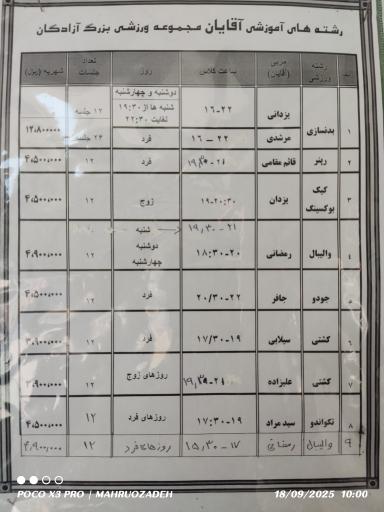 رشته های آموزشی آقایان مجموعه ورزشی بزرگ آزادگان
رشته ورزشی مربی (آقایان) ساعت کلاس روز تعداد جلسات شهریه (ریال)
۱ بدنسازی یزدانی ۱۶-۲۲ دوشنبه و چهارشنبه شنبه ها از ۱۹:۳۰ لغایت ۲۲:۳۰ ۱۲ جلسه
مرشدی ۱۶ – ۲۲ فرد ۲۴ جلسه ۱۲,۸۰۰۰۰۰
۲ رپنر قائم مقامی فرد ۱۲ ۴,۵۰۰,۰۰۰
۳ کیک بوکسینگ یزدان ۱۹-۲۰:۳۰ زوج ۱۲ ۴,۵۰۰,۰۰۰
۴ والیبال رمضانی ۱۹,۳۰-۲۱ شنبه
۱۸:۳۰-۲۰ دوشنبه چهارشنبه ۱۲ ۴,۹۰۰,۰۰۰
۵ جودو جافر ۲۰/۳۰-۲۲ فرد ۱۲ ۴,۵۰۰,۰۰۰
۶ کشتی سیلابی ۱۷/۳۰-۱۹ فرد ۱۲ ۳,۹۰۰,۰۰۰
۷ کشتی علیزاده روزهای زوج ۱۲ ۳,۹۰۰,۰۰۰
۸ تکواندو سید مراد ۱۷:۳۰-۱۹ روزهای فرد ۱۲ ۴,۵۰۰,۰۰۰
۹ والیبال ۱۵,۳۰-۱۷ روزهای فرد ۱۲ ۴,۹۰۰,۰۰۰
POCO X3 PRO | MAHRUOZADEH 18/09/2025 10:00